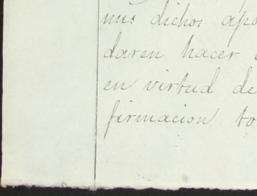 mis dichos apo
daren hacer
en virtud de
firmacion to